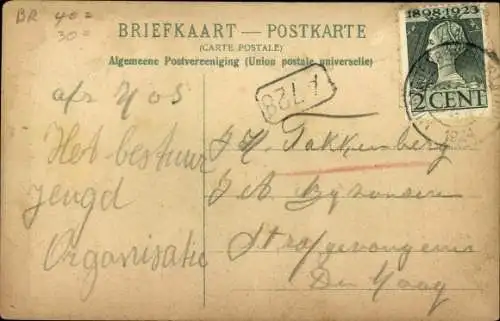 BR 40=
30=
BRIEFKAART — POSTKARTE
(CARTE POSTALE)
Algemeene Postvereeniging (Union postale universelle)
1898-1923
2 CENT
A 728
afz Yos
Het bestuur
Jeugd
Organisatie
J H. Takkenberg
J A Byzondere
Strafgevangenis
Den Haag